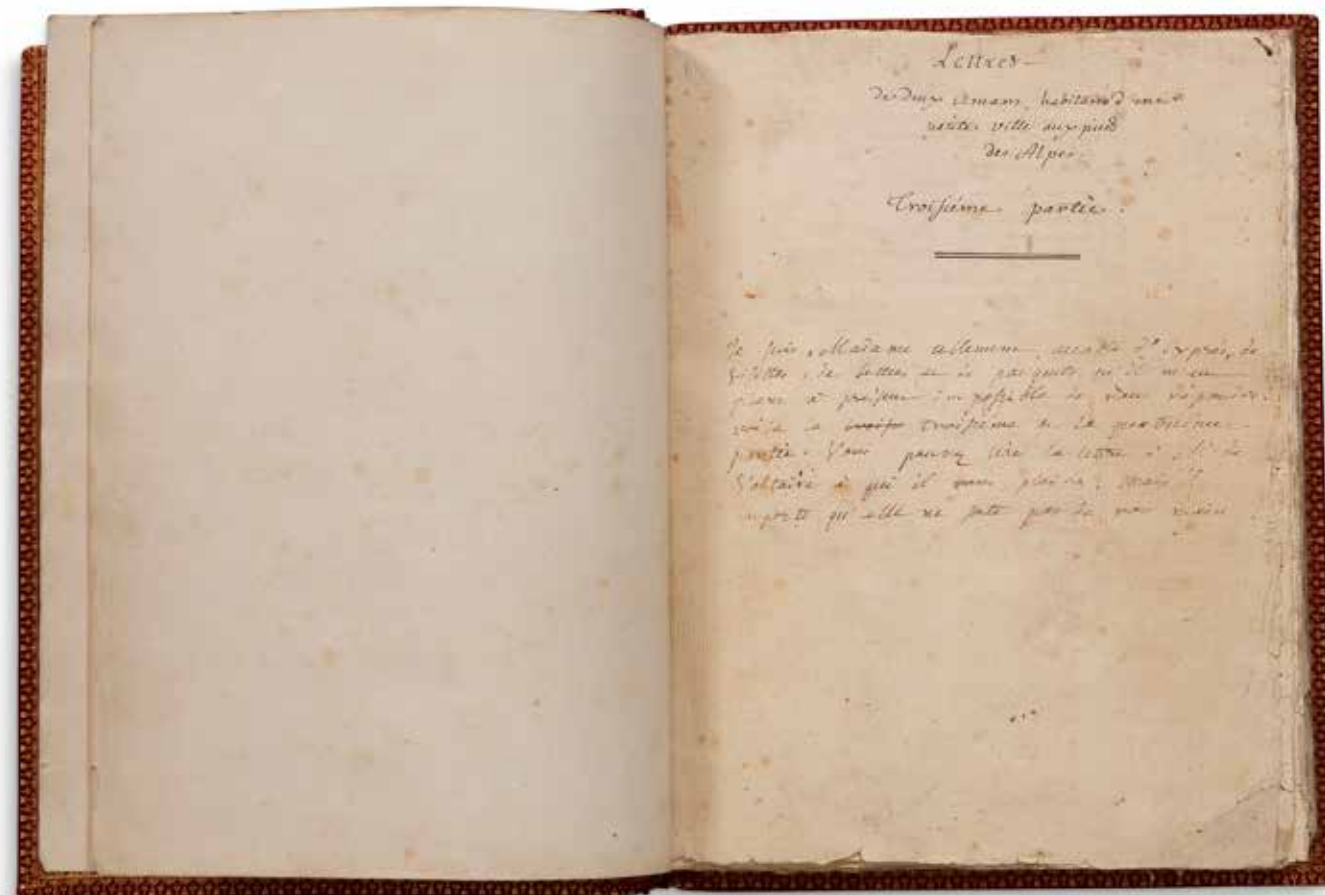 Lettres
De Deux Amans, habitans d'une
petite ville aux pieds
des Alpes.
Troisiéme partie.
Je suis, Madame tellement accablé d'exprès, de
billets, de lettres et de paquets, qu'il m'est
quant à présent impossible de vous répondre.
voici la troisieme et la quatrieme
partie. Vous pouvez lire la lettre à M. de
Voltaire à qui il vous plaira; mais il
importe qu'elle ne sorte pas de vos mains